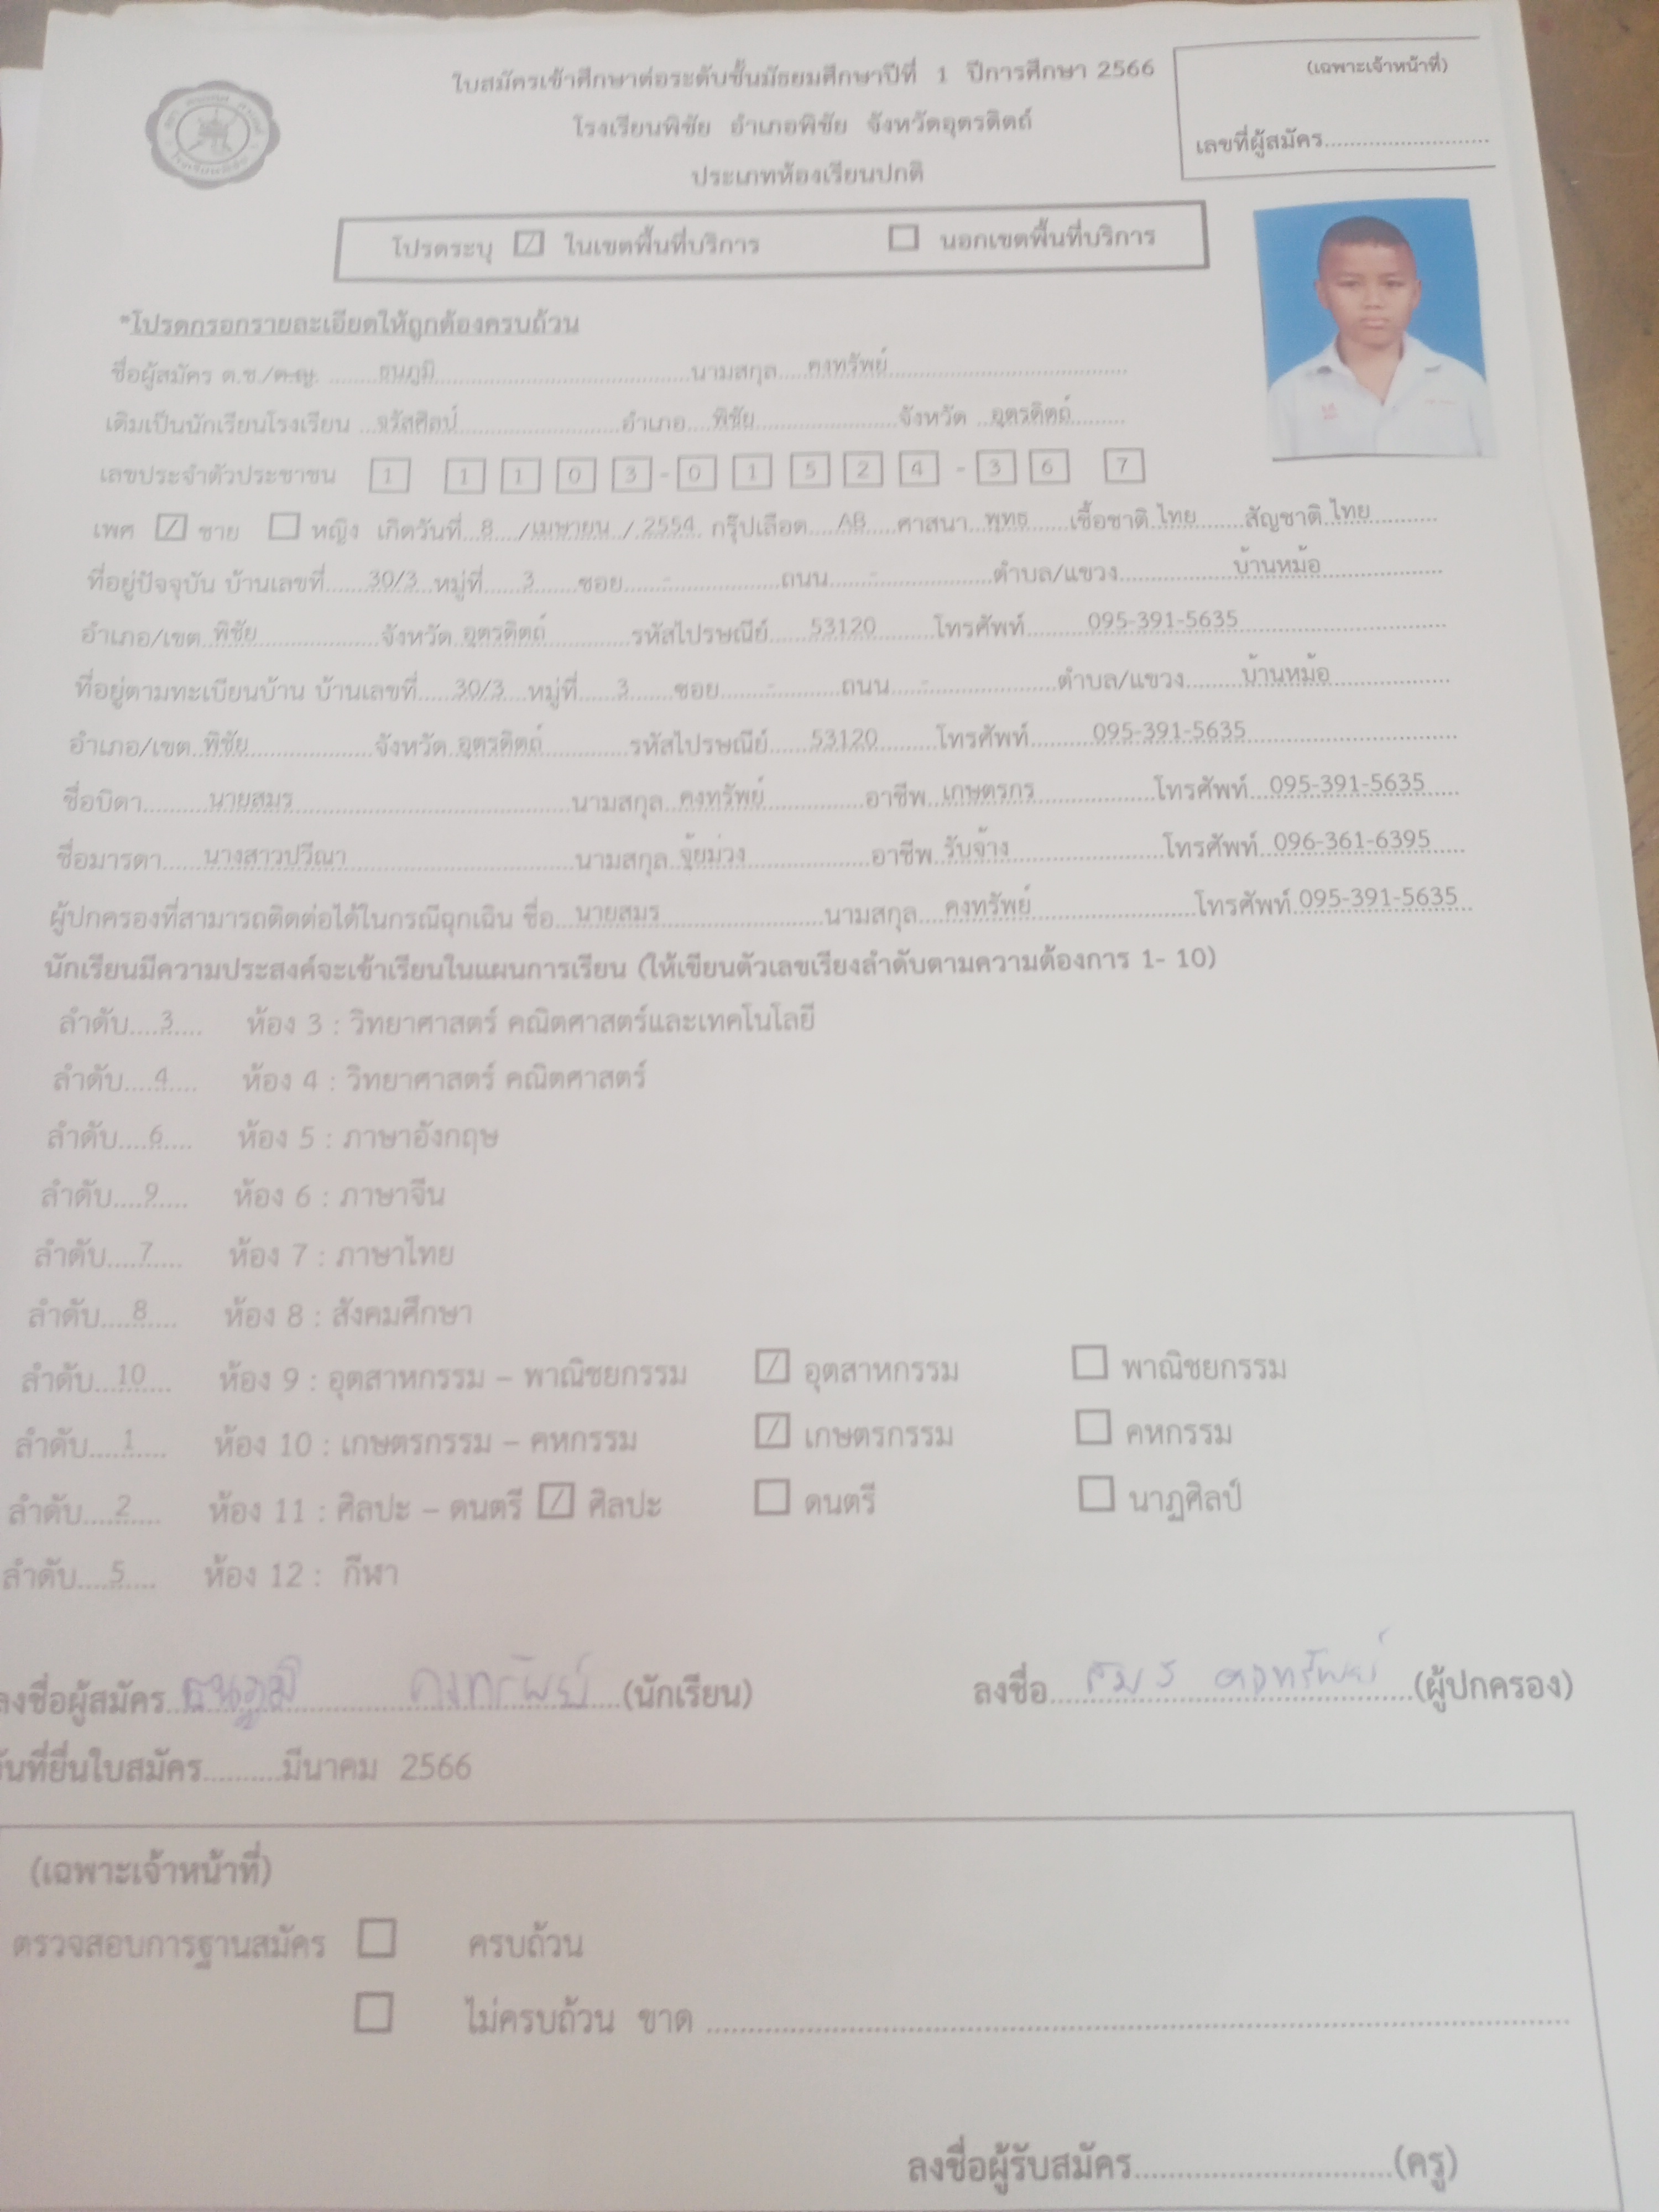 ใบสมัครเข้าศึกษาต่อระดับชั้นมัธยมศึกษาปีที่ 1 ปีการศึกษา 2566
(เฉพาะเจ้าหน้าที่)
โรงเรียนพิชัย อำเภอพิชัย จังหวัดอุตรดิตถ์
เลขที่ผู้สมัคร..........................
ประเภทห้องเรียนปกติ
โปรดระบุ ☑ ในเขตพื้นที่บริการ ☐ นอกเขตพื้นที่บริการ
*โปรดกรอกรายละเอียดให้ถูกต้องครบถ้วน
ชื่อผู้สมัคร ด.ช./ด.ญ. ........ธนภูมิ........นามสกุล.....คงทรัพย์........
เดิมเป็นนักเรียนโรงเรียน ...จรัสศิลป์........อำเภอ....พิชัย........จังหวัด ...อุตรดิตถ์........
เลขประจำตัวประชาชน 1 1 1 0 3 - 0 1 5 2 4 - 3 6 7
เพศ ☑ ชาย ☐ หญิง เกิดวันที่..8.../เมษายน./.2554. กรุ๊ปเลือด....AB.....ศาสนา..พุทธ......เชื้อชาติ.ไทย.......สัญชาติ.ไทย..........
ที่อยู่ปัจจุบัน บ้านเลขที่......30/3..หมู่ที่.....3......ซอย.....-........ถนน......-........ตำบล/แขวง........บ้านหม้อ........
อำเภอ/เขต..พิชัย........จังหวัด..อุตรดิตถ์........รหัสไปรษณีย์......53120........โทรศัพท์........095-391-5635........
ที่อยู่ตามทะเบียนบ้าน บ้านเลขที่.....30/3...หมู่ที่.....3......ซอย......-........ถนน....-........ตำบล/แขวง........บ้านหม้อ........
อำเภอ/เขต..พิชัย........จังหวัด..อุตรดิตถ์........รหัสไปรษณีย์......53120........โทรศัพท์........095-391-5635........
ชื่อบิดา........นายสมร........นามสกุล..คงทรัพย์........อาชีพ..เกษตรกร........โทรศัพท์...095-391-5635.....
ชื่อมารดา.....นางสาวปวีณา........นามสกุล..จุ้ยม่วง........อาชีพ..รับจ้าง........โทรศัพท์..096-361-6395.....
ผู้ปกครองที่สามารถติดต่อได้ในกรณีฉุกเฉิน ชื่อ...นายสมร........นามสกุล....คงทรัพย์........โทรศัพท์.095-391-5635..
นักเรียนมีความประสงค์จะเข้าเรียนในแผนการเรียน (ให้เขียนตัวเลขเรียงลำดับตามความต้องการ 1- 10)
ลำดับ....3..... ห้อง 3 : วิทยาศาสตร์ คณิตศาสตร์และเทคโนโลยี
ลำดับ....4..... ห้อง 4 : วิทยาศาสตร์ คณิตศาสตร์
ลำดับ....6..... ห้อง 5 : ภาษาอังกฤษ
ลำดับ....9..... ห้อง 6 : ภาษาจีน
ลำดับ....7..... ห้อง 7 : ภาษาไทย
ลำดับ....8..... ห้อง 8 : สังคมศึกษา
ลำดับ...10.... ห้อง 9 : อุตสาหกรรม – พาณิชยกรรม ☑ อุตสาหกรรม ☐ พาณิชยกรรม
ลำดับ....1..... ห้อง 10 : เกษตรกรรม – คหกรรม ☑ เกษตรกรรม ☐ คหกรรม
ลำดับ....2..... ห้อง 11 : ศิลปะ – ดนตรี ☑ ศิลปะ ☐ ดนตรี ☐ นาฏศิลป์
ลำดับ....5..... ห้อง 12 : กีฬา
ลงชื่อผู้สมัคร..ธนภูมิ คงทรัพย์....(นักเรียน) ลงชื่อ....สมร คงทรัพย์....(ผู้ปกครอง)
วันที่ยื่นใบสมัคร..........มีนาคม 2566
(เฉพาะเจ้าหน้าที่)
ตรวจสอบการฐานสมัคร ☐ ครบถ้วน
☐ ไม่ครบถ้วน ขาด ............................................................
ลงชื่อผู้รับสมัคร..............................(ครู)